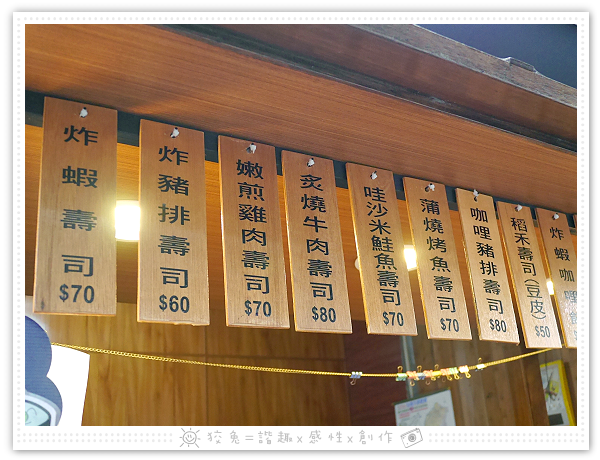 炸蝦壽司
$70
炸豬排壽司
$60
嫩煎雞肉壽司
$70
炙燒牛肉壽司
$80
哇沙米鮭魚壽司
$70
蒲燒烤魚壽司
$70
咖哩豬排壽司
$80
稻禾壽司(豆皮)
$50
炸蝦咖哩
狡兔=諧趣x感性x創作